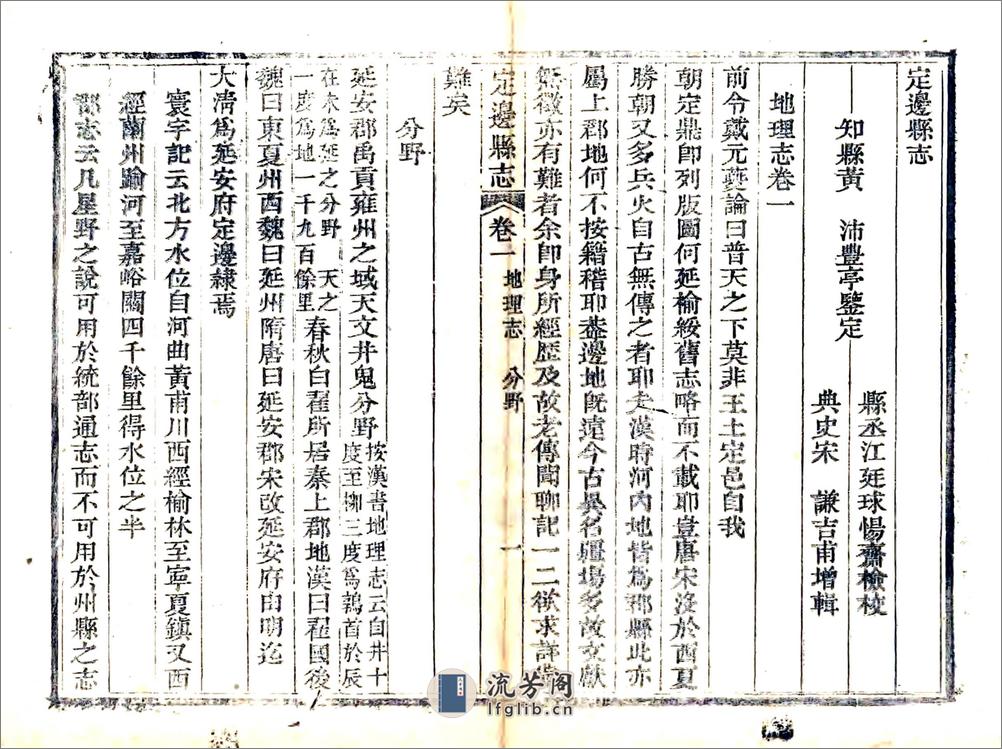 定邊縣志
知縣黃 沛豐亭鑒定
縣丞江廷球惕齋檢校
典史宋 謙吉甫增輯
地理志卷一
前令戴元夔論曰普天之下莫非王土定邑自我
朝定鼎卽列版圖何延榆綏舊志略而不載耶豈唐宋沒於西夏
勝朝又多兵火自古無傳之者耶夫漢時河內地皆為郡縣此亦
屬上郡地何不按籍稽耶葢邊地旣遠今古異名疆場多故文獻
無徵亦有難者余卽身所經歷及故老傳聞聊記一二欲求詳
定邊縣志 卷一 地理志 分野 一
難矣
分野
延安郡禹貢雍州之域天文井鬼分野按漢書地理志云自井十
度至柳三度為鶉首於辰
在未為延之分野 天之
一度為地一千九百餘里春秋白翟所居秦上郡地漢曰翟國後
魏曰東夏州西魏曰延州隋唐曰延安郡宋改延安府由明迄
大清為延安府定邊隸焉
寰宇記云北方水位自河曲黃甫川西經榆林至寧夏鎮又西
經蘭州踰河至嘉峪關四千餘里得水位之半
郡志云凡星野之說可用於統部通志而不可用於州縣之志
流芳阁
lfglib.cn